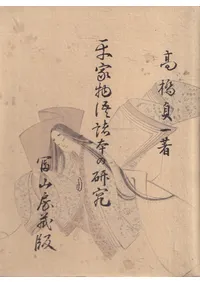 高橋貞一著
平家物語諸本の研究
冨山房蔵版